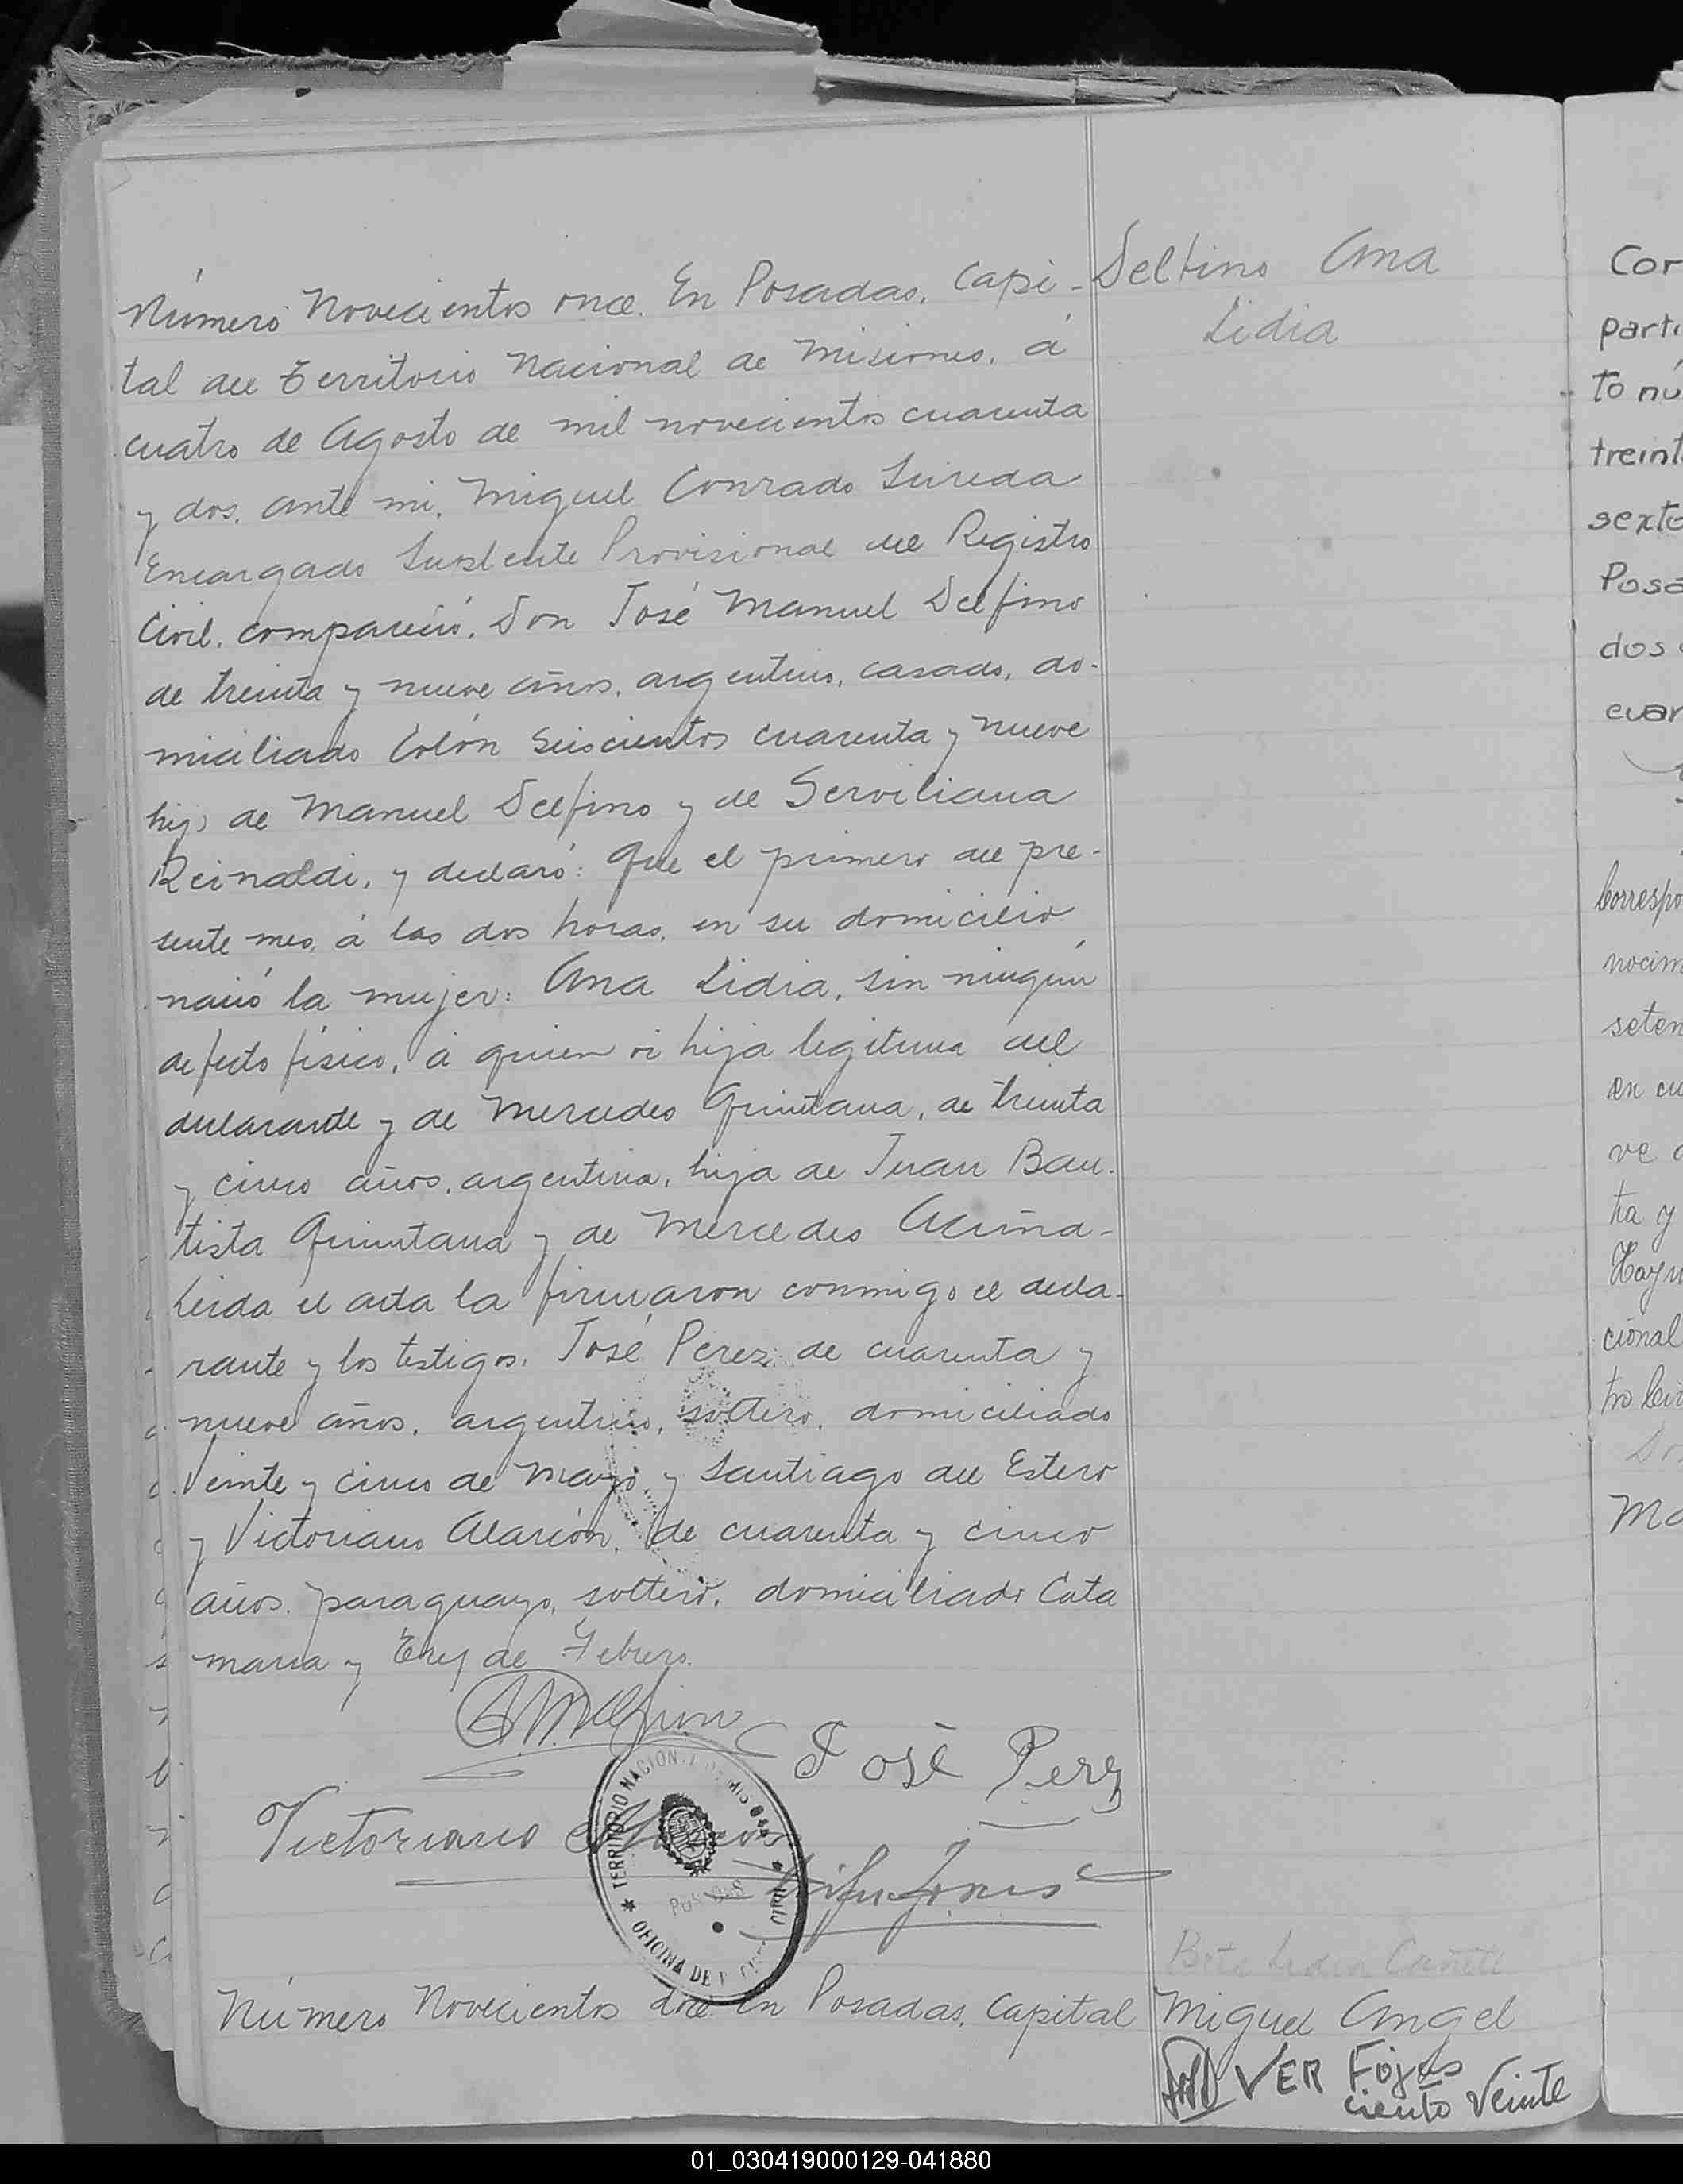 Número Novecientos once. En Posadas, Capi-
tal del Territorio Nacional de Misiones, á
cuatro de Agosto de mil novecientos cuarenta
y dos, ante mi, Miguel Conrado Sureda
Encargado Suplente Provisional del Registro
Civil, compareció, Don José Manuel Delfino
de treinta y nueve años, argentino, casado, do-
miciliado Colón Seiscientos cuarenta y nueve
hijo de Manuel Delfino y de Serviliana
Reinaldi, y declaró: Que el primero del pre-
sente mes, á las dos horas, en su domicilio
nació la mujer: Ana Lidia, sin ningún
defecto físico, á quien vi hija legitima del
declarante y de Mercedes Quintana, de treinta
y cinco años, argentina, hija de Juan Bau-
tista Quintana y de Mercedes Acuña-
Leida el acta la firmaron conmigo el decla-
rante y los testigos, José Perez, de cuarenta y
nueve años, argentino, soltero, domiciliado
Veinte y cinco de Mayo y Santiago del Estero
y Victoriano Alarcón, de cuarenta y cinco
años, paraguayo, soltero, domiciliado Cata
marca y Tres de Febrero.
José Perez
Victoriano Alarcon
TERRITORIO NACIONAL DE MISIONES
POSADAS
OFICINA DE
Número Novecientos doce En Posadas, Capital
Delfino Ana
Lidia
Lidia Cañete
Miguel Angel
VER Fojas
ciento Veinte
Cor
parti
to nú
treint
sexto
Posa
dos
cuar
Correspo
nocim
seten
en cu
ve
ta y
cional
01_030419000129-041880